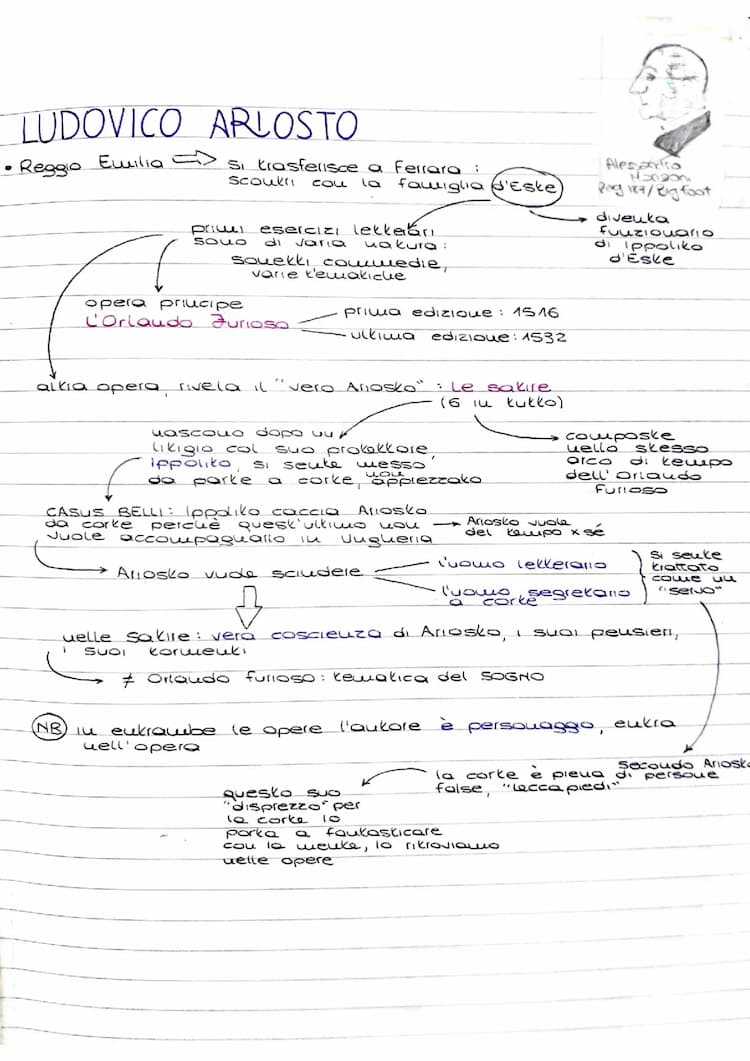 LUDOVICO ARIOSTO
Alessandro
Manzoni
• Reggio Emilia ⇒ si trasferisce a Ferrara :
scontri con la famiglia d'Este
diventa
funzionario
di Ippolito
d'Este
primi esercizi letterari
sono di varia natura :
sonetti commedie,
varie tematiche
opera principe
L'Orlando Furioso
prima edizione : 1516
ultima edizione : 1532
altra opera, rivela il "vero Ariosto" : Le satire
(6 in tutto)
nascono dopo un
litigio col suo protettore,
ippolito, si sente messo
da parte a corte, non apprezzato
composte
nello stesso
arco di tempo
dell'Orlando
Furioso
CASUS BELLI : Ippolito caccia Ariosto
da corte perchè quest'ultimo non
vuole accompagnarlo in Ungheria
Ariosto vuole
del tempo x sé
Ariosto vuole scindere
l'uomo letterario
l'uomo segretario
a corte
si sente
trattato
come un
"servo"
nelle satire : vera coscienza di Ariosto, i suoi pensieri,
i suoi tormenti
≠ Orlando furioso : tematica del SOGNO
NB in entrambe le opere l'autore è personaggio, entra
nell'opera
secondo Ariosto
la corte è piena di persone
false, "leccapiedi"
questo suo
"disprezzo" per
la corte lo
porta a fantasticare
con la mente, lo ritroviamo
nelle opere